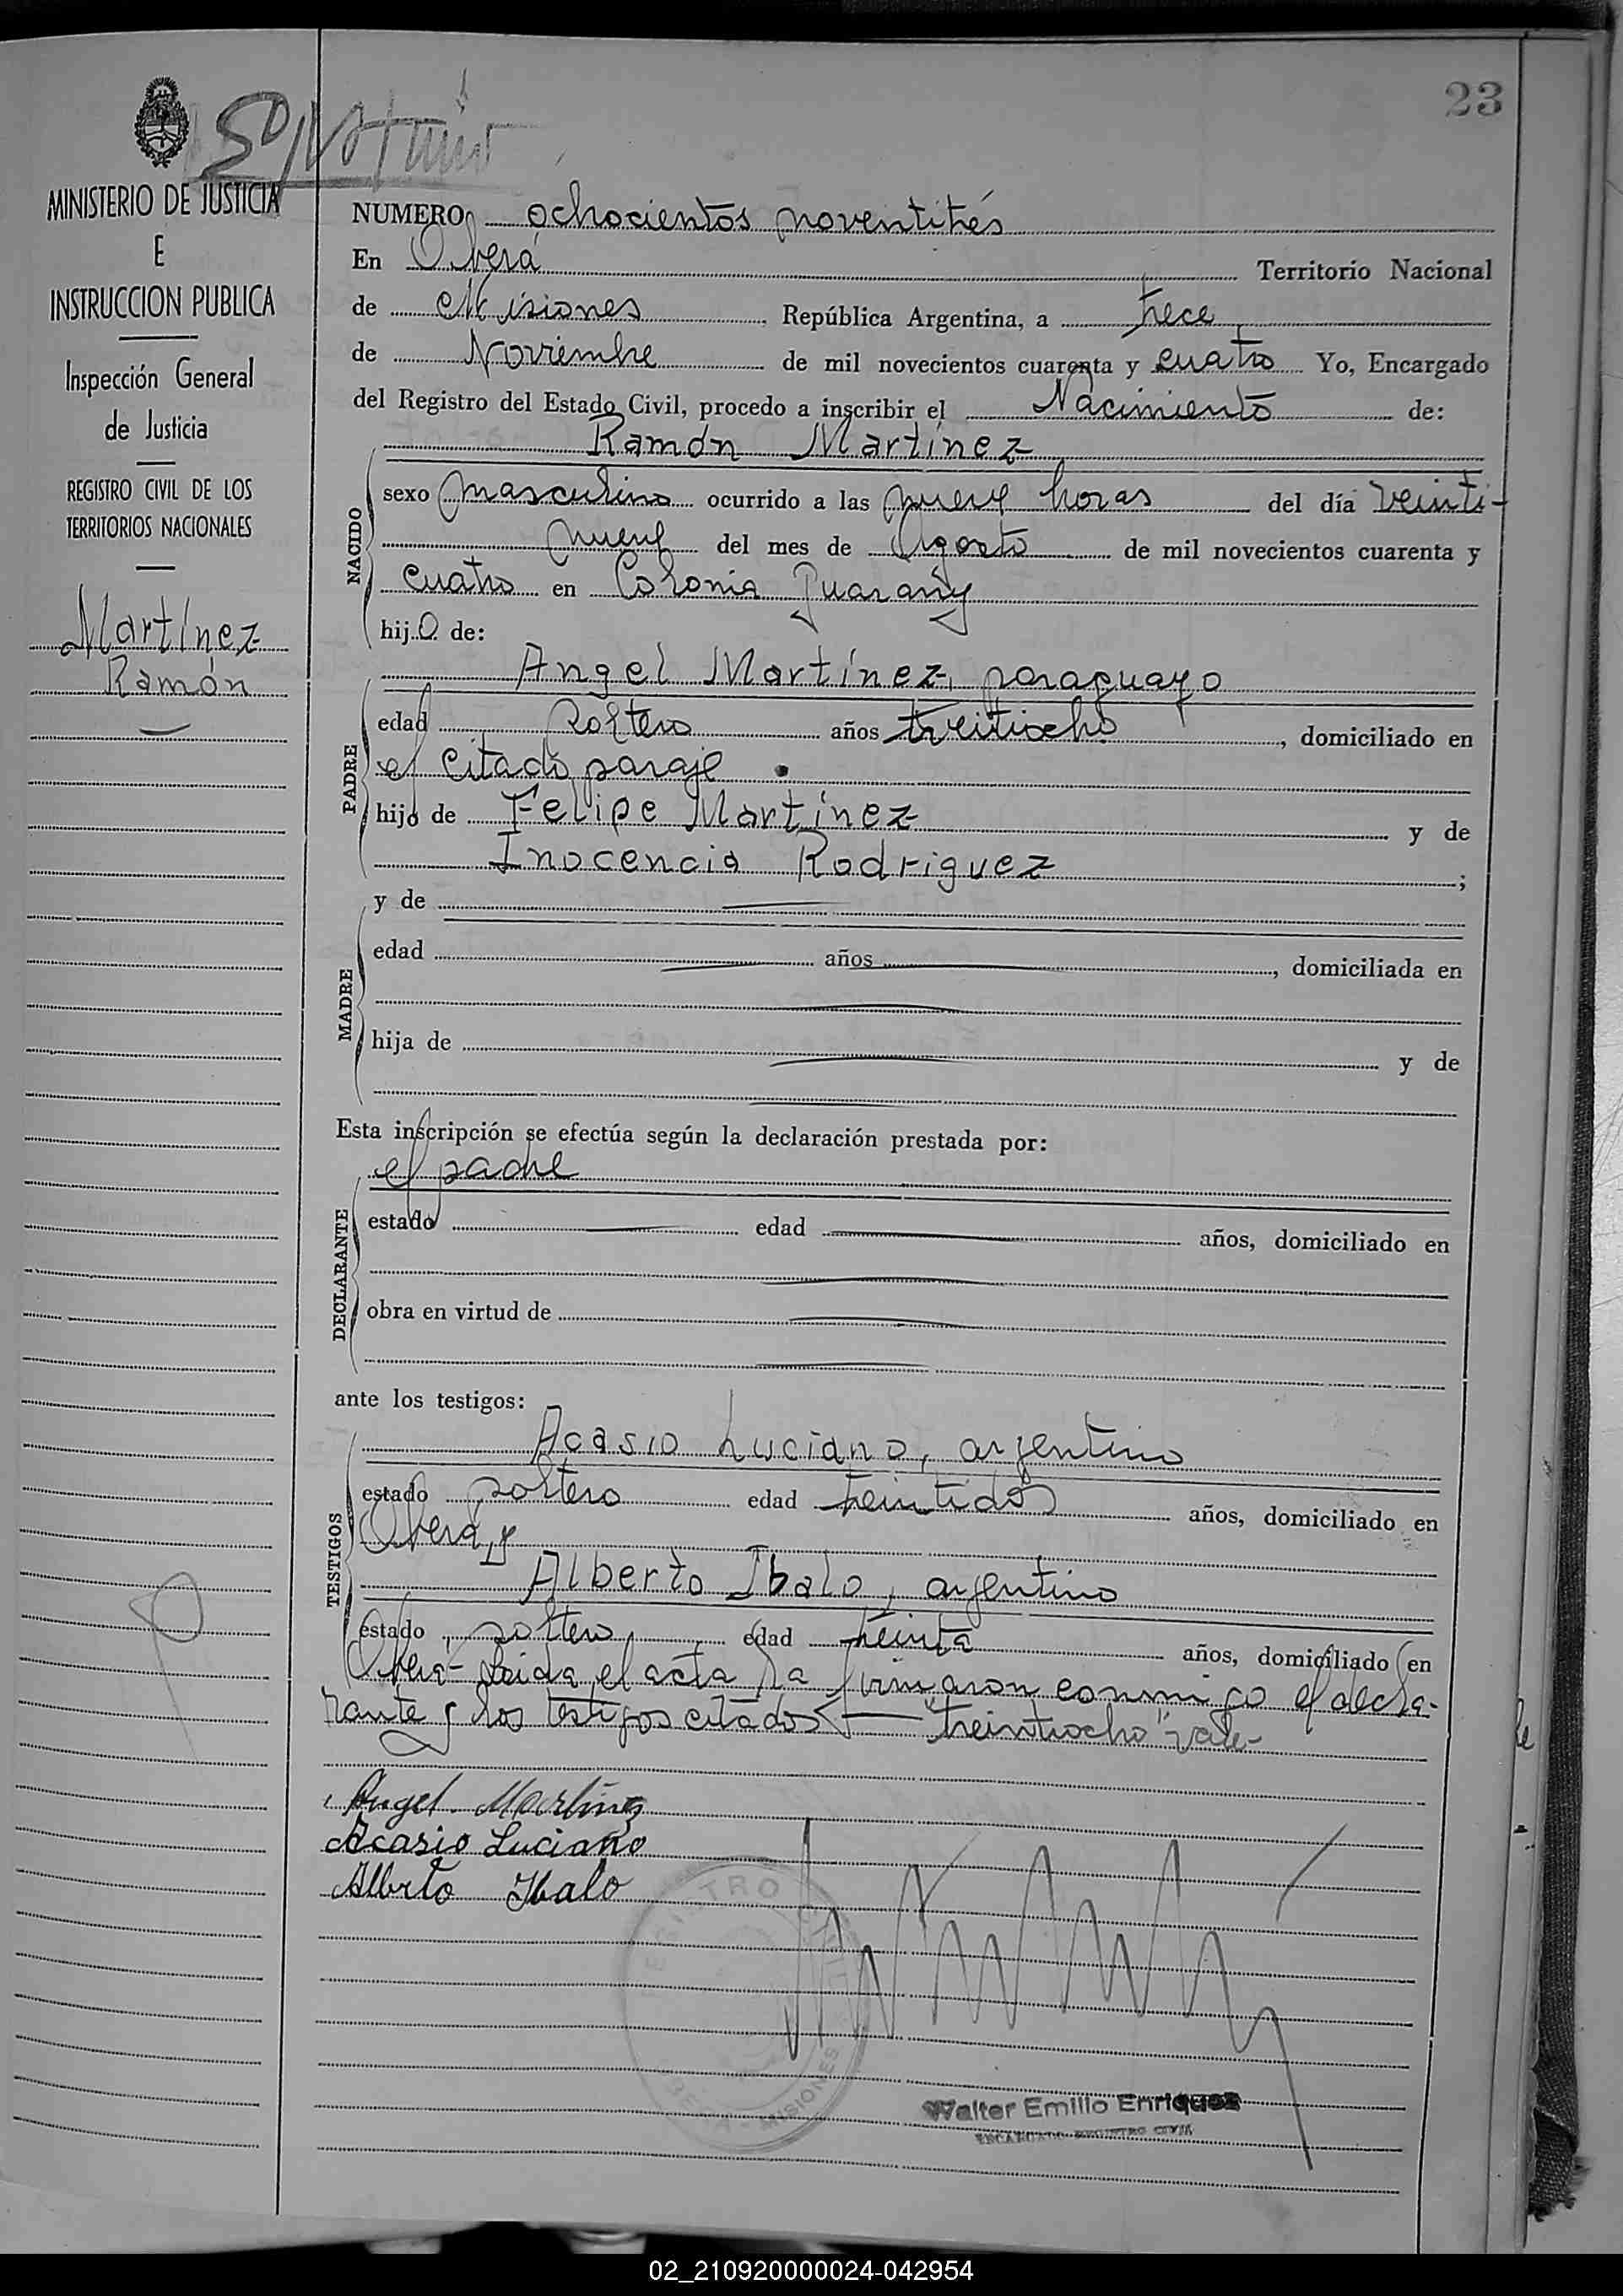 23
MINISTERIO DE JUSTICIA
E
INSTRUCCION PUBLICA
Inspección General
de Justicia
REGISTRO CIVIL DE LOS
TERRITORIOS NACIONALES
Martínez
Ramón
NUMERO ochocientos noventitrés
En Oberá Territorio Nacional
de Misiones República Argentina, a trece
de Noviembre de mil novecientos cuarenta y cuatro Yo, Encargado
del Registro del Estado Civil, procedo a inscribir el Nacimiento de:
Ramón Martínez
NACIDO
sexo masculino ocurrido a las nueve horas del día veinti-
nueve del mes de Agosto de mil novecientos cuarenta y
cuatro en Colonia Guarany
hijo de:
Angel Martínez, paraguayo
PADRE
edad soltero años treitiocho, domiciliado en
el citado paraje.
hijo de Felipe Martínez y de
Inocencia Rodriguez;
MADRE
y de
edad años, domiciliada en
hija de y de
Esta inscripción se efectúa según la declaración prestada por:
el padre
DECLARANTE
estado edad años, domiciliado en
obra en virtud de
ante los testigos:
TESTIGOS
Acasio Luciano, argentino
estado soltero edad treintidós años, domiciliado en
Oberá y
Alberto Ibalo, argentino
estado soltero edad treinta años, domiciliado en
Oberá- Leida el acta la firmaron conmigo el decla-
rante y los testigos citados "treintiocho" vale-
Angel Martinez
Acasio Luciano
Alberto Ibalo
REGISTRO CIVIL
OBERA - MISIONES
Walter Emilio Enriquez
ENCARGADO REGISTRO CIVIL
02_210920000024-042954